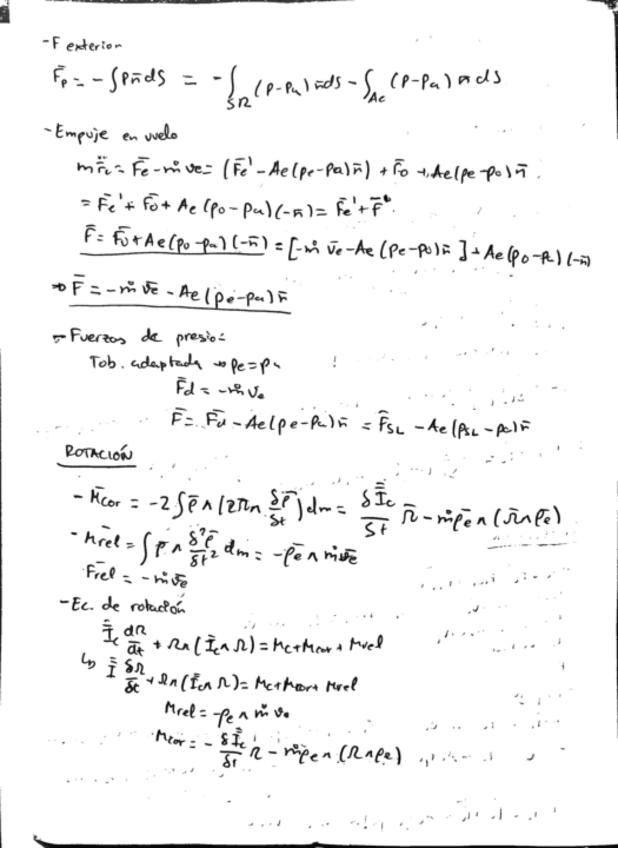 - F exterior
F̄p = - ∫ p n̄ dS = - ∫_SR (p-pa) n̄ dS - ∫_Ae (p-pa) n̄ dS
- Empuje en vuelo
m r̈c = F̄e - ṁ ve = (F̄e' - Ae(pe-pa) n̄) + F̄o + Ae(pe-po) n̄
= F̄e' + F̄o + Ae (po-pa)(-n̄) = F̄e' + F̄
F̄ = F̄o + Ae(po-pa)(-n̄) = [-ṁ v̄e - Ae (pe-po) n̄] + Ae(po-pa)(-n̄)
→ F̄ = -ṁ v̄e - Ae (pe-pa) n̄
- Fuerzas de presio:
Tob. adaptada → pe = pa
F̄d = -ṁ v̄e
F̄ = F̄d - Ae(pe-pa) n̄ = F̄SL - Ae (pSL-pa) n̄
ROTACIÓN
- M̄cor = -2 ∫ ρ̄ ∧ (2πn δρ̄/δt) dm = δĪc/δt Ω̄ - ṁ ρ̄e ∧ (Ω̄ ∧ ρ̄e)
- M̄rel = ∫ ρ̄ ∧ δ²ρ̄/δt² dm = -ρ̄e ∧ ṁ v̄e
F̄rel = -ṁ v̄e
- Ec. de rotación
Īc dΩ/dt + Ω∧(Īc∧Ω) = Mc + Mcor + Mrel
↳ Ī δΩ/δt + Ω∧(Īc∧Ω) = Mc + Mcor + Mrel
Mrel = -ρe ∧ ṁ ve
Mcor = - δĪc/δt Ω - ṁ ρe ∧ (Ω∧ρe)